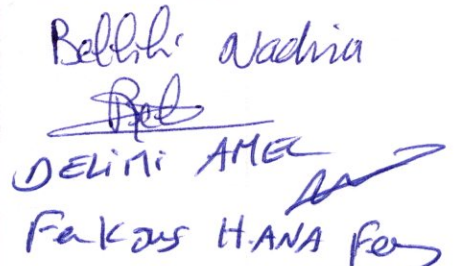 Bellihi Nadira
DELIMI AMEL
Fenkous HANA